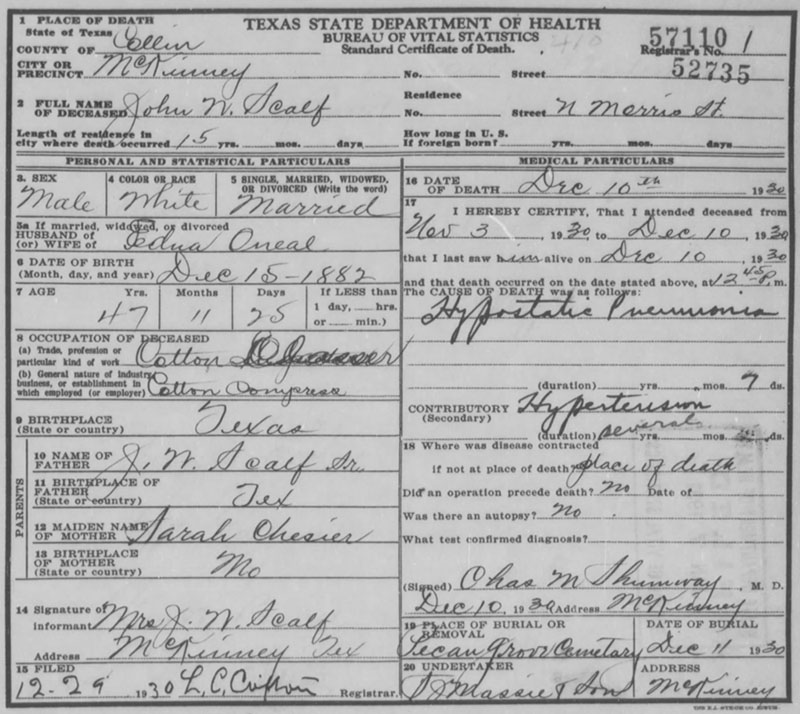 TEXAS STATE DEPARTMENT OF HEALTH
BUREAU OF VITAL STATISTICS
Standard Certificate of Death.
57110 1
Registrar's No.
52735
1 PLACE OF DEATH
State of Texas
COUNTY OF Collin
CITY OR PRECINCT McKinney No. Street
2 FULL NAME OF DECEASED John W. Scalf
Residence No. Street N Morris St.
Length of residence in city where death occurred 15 yrs. mos. days
How long in U. S. If foreign born? yrs. mos. days
PERSONAL AND STATISTICAL PARTICULARS
3. SEX Male
4 COLOR OR RACE White
5 SINGLE, MARRIED, WIDOWED, OR DIVORCED (Write the word) Married
5a If married, widowed, or divorced
HUSBAND OF
(or) WIFE of Edna Oneal
6 DATE OF BIRTH
(Month, day, and year) Dec 15-1882
7 AGE Yrs. Months Days If LESS than
47 11 25 1 day, hrs.
or min.)
8 OCCUPATION OF DECEASED
(a) Trade, profession or particular kind of work Cotton
(b) General nature of industry, business, or establishment in which employed (or employer) Cotton Compress
9 BIRTHPLACE
(State or country) Texas
PARENTS
10 NAME OF FATHER J. W. Scalf Sr.
11 BIRTHPLACE OF FATHER
(State or country) Tex
12 MAIDEN NAME OF MOTHER Sarah
13 BIRTHPLACE OF MOTHER
(State or country) Mo
14 Signature of informant Mrs J. W. Scalf
Address McKinney Tex
15 FILED
12-29 1930 L. C. Registrar.
MEDICAL PARTICULARS
16 DATE OF DEATH Dec 10th 1930
17 I HEREBY CERTIFY, That I attended deceased from
Nov 3, 1930 to Dec 10, 1930
that I last saw him alive on Dec 10, 1930
and that death occurred on the date stated above, at 12 45 P. m.
The CAUSE OF DEATH was as follows:
Hypostatic Pneumonia
(duration) yrs. mos. 7 ds.
CONTRIBUTORY
(Secondary) Hypertension
(duration) several yrs. mos. ds.
18 Where was disease contracted
if not at place of death? place of death
Did an operation precede death? No Date of
Was there an autopsy? No.
What test confirmed diagnosis?
(Signed) Chas M Shumway M. D.
Dec 10, 1930 Address McKinney
19 PLACE OF BURIAL OR REMOVAL
Pecan Grove Cemetary
DATE OF BURIAL
Dec 11 1930
20 UNDERTAKER
Massie & Son
ADDRESS
McKinney